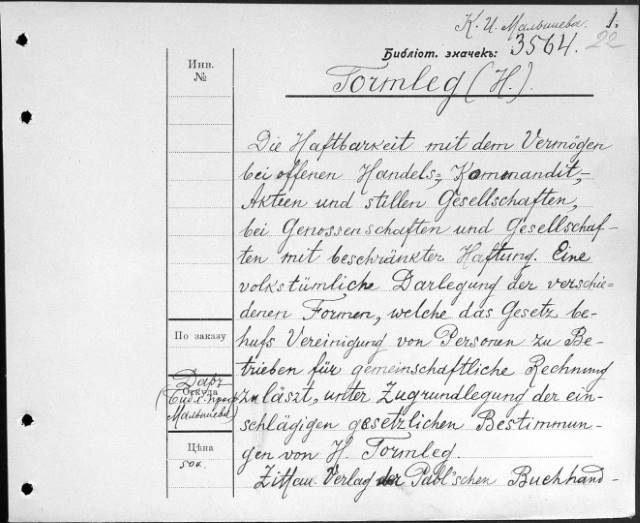 К. И. Малышева. 1.
22
Библіот. значекъ: 3564.
Инв.
№
Formleg (H.).
Die Haftbarkeit mit dem Vermögen
bei offenen Handels-, Kommandit-,
Aktien und stillen Gesellschaften,
bei Genossenschaften und Gesellschaf-
ten mit beschränkter Haftung. Eine
volkstümliche Darlegung der verschie-
denen Formen, welche das Gesetz be-
hufs Vereinigung von Personen zu Be-
trieben für gemeinschaftliche Rechnung
zuläszt, unter Zugrundlegung der ein-
schlägigen gesetzlichen Bestimmun-
gen von H. Formleg.
Zittau. Verlag der Pahl'schen Buchhand-
По заказу
Откуда
Даръ
(Библ. проф.
Малышева)
Цѣна
50к.